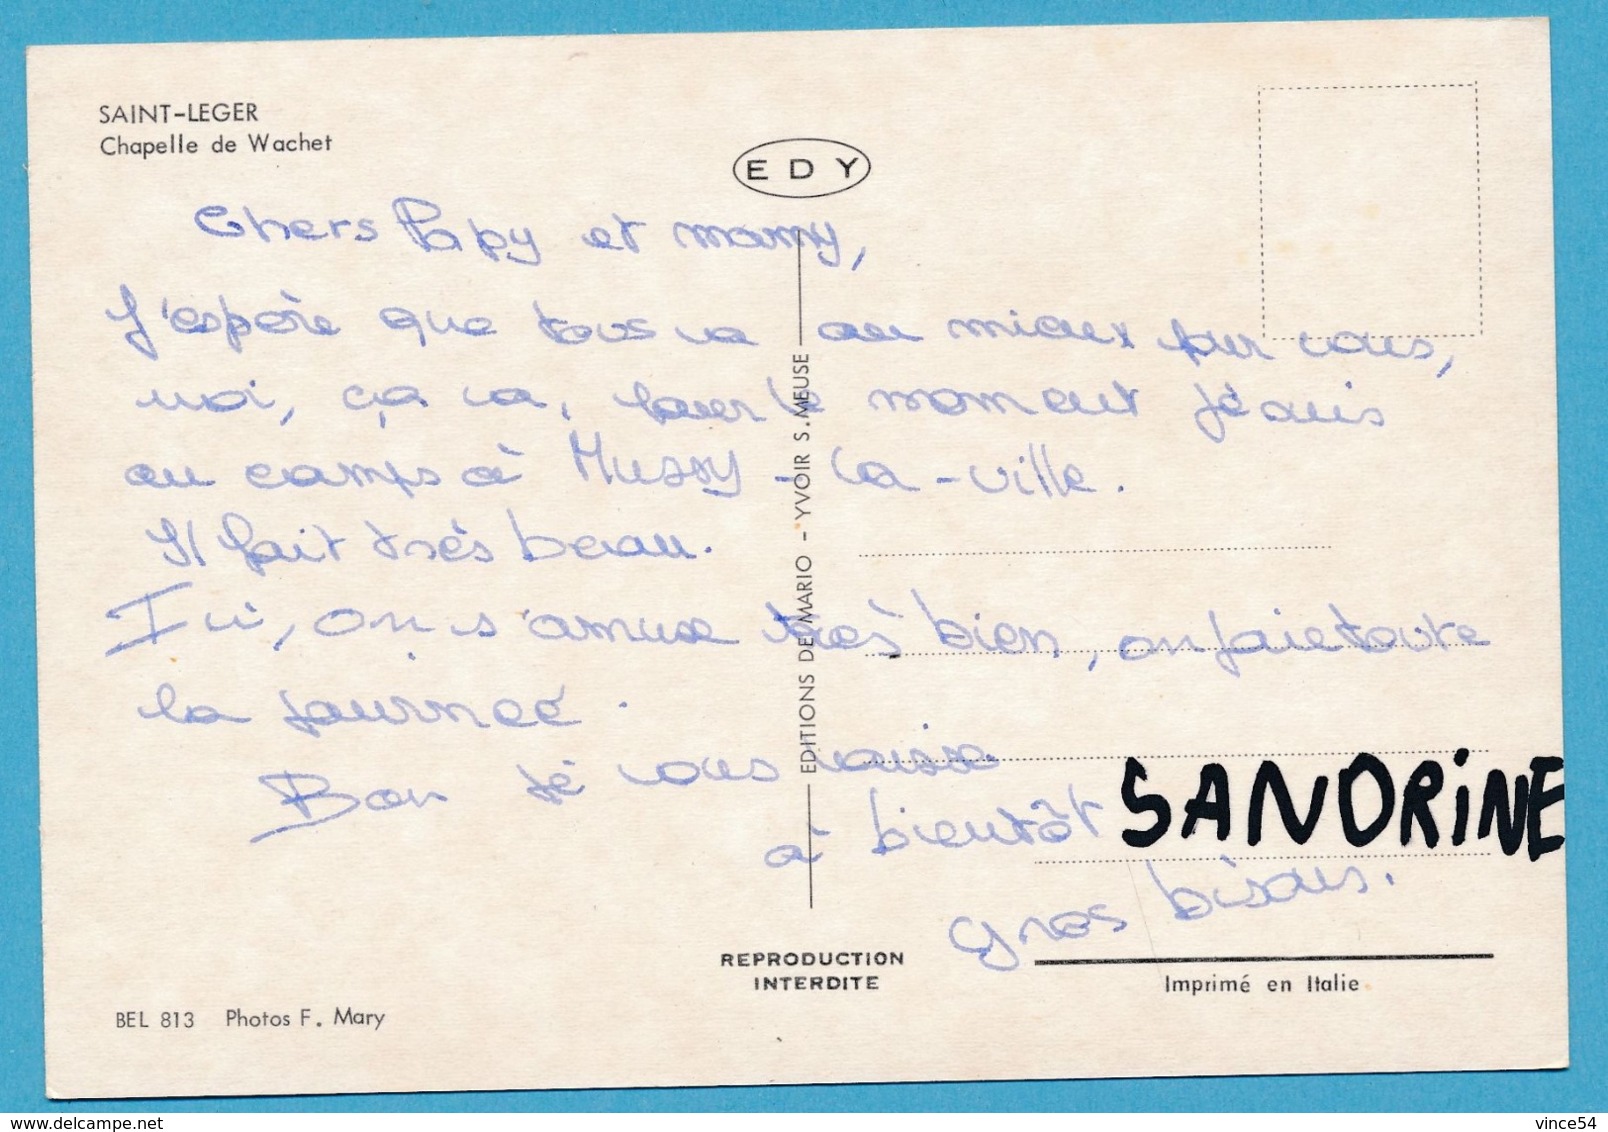 SAINT-LEGER
Chapelle de Wachet
EDY
Chers Papy et mamy,
J'espère que tous va au mieux pour vous,
moi, ça va, pour le moment je suis
au camps à Mussy-la-ville.
Il fait très beau.
Ici, on s'amuse très bien, on joue toute
la journée.
Bon je vous laisse
à bientôt SANDRiNE
gros bisous.
EDITIONS DE MARIO - YVOIR S. MEUSE
REPRODUCTION
INTERDITE
Imprimé en Italie
BEL 813 Photos F. Mary
delcampe.net
vince54